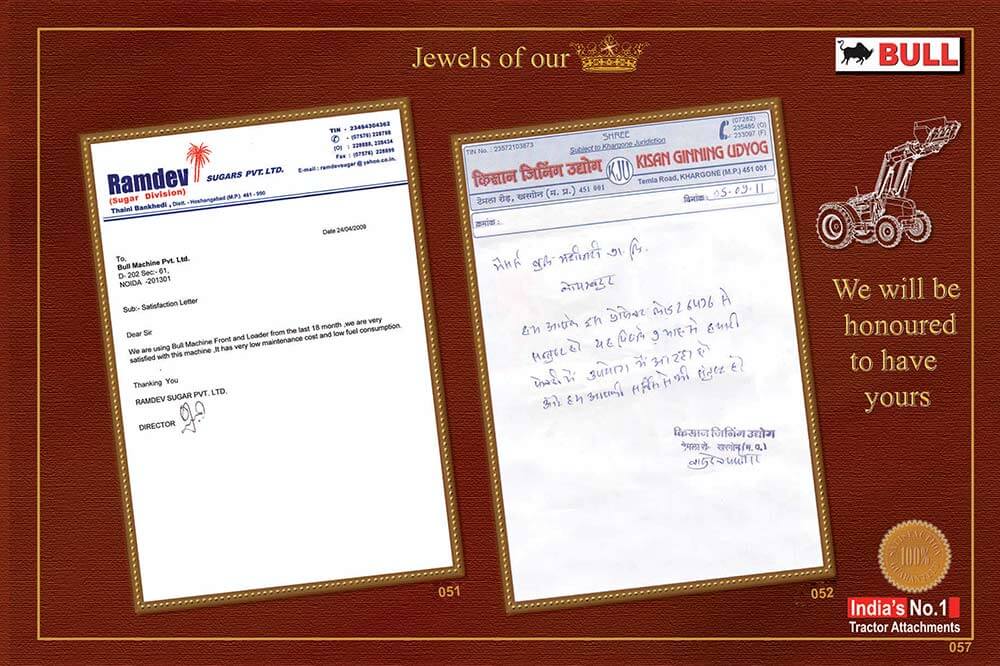 Jewels of our
BULL
Ramdev SUGARS PVT. LTD.
(Sugar Division)
Thaini Bankhedi, Distt. - Hoshangabad (M.P.) 461 - 990
TIN - 23464304362
- (07576) 228788
(O) : 228888, 228424
Fax : (07576) 228899
E-mail : ramdevsugar@yahoo.co.in.
Date 24/04/2009
To,
Bull Machine Pvt. Ltd.
D- 202 Sec:- 61,
NOIDA -201301
Sub:- Satisfaction Letter
Dear Sir
We are using Bull Machine Front and Loader from the last 18 month ,we are very
satisfied with this machine ,It has very low maintenance cost and low fuel consumption.
Thanking You
RAMDEV SUGAR PVT. LTD.
DIRECTOR
051
TIN No. : 23572103873
SHREE
Subject to Khargone Juridiction
(07282)
235485 (O)
233097 (F)
किसान जिनिंग उद्योग KJU KISAN GINNING UDYOG
टेमला रोड़, खरगोन (म. प्र.) 451 001
Temla Road, KHARGONE (M.P.) 451 001
क्रमांक :
दिनांक : 05-09-11
मेसर्स बुल मशीनरी प्रा. लि.
हम आपके इस
उपयोग में आ रहा है
और हम आपकी सर्विस से भी संतुष्ट है
किसान जिनिंग उद्योग
टेमला रोड़- खरगोन (म.प्र.)
052
We will be
honoured
to have
yours
SATISFACTION
100%
GUARANTEE
India's No.1
Tractor Attachments
057